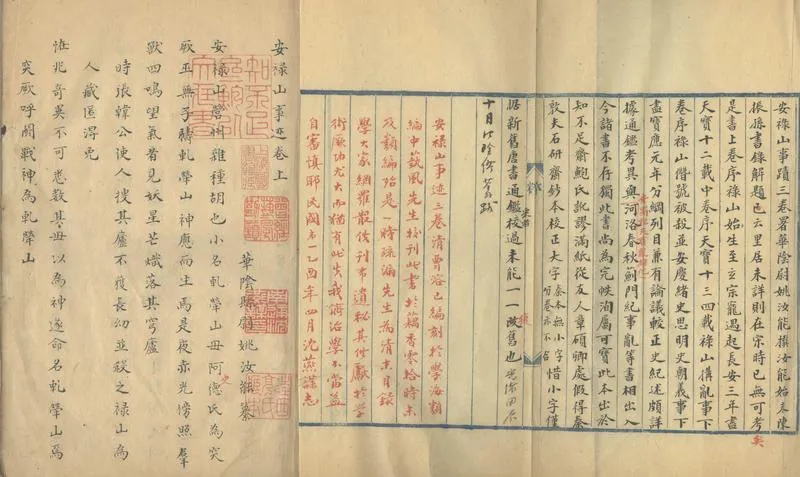 安祿山事蹟三卷署華陰尉姚汝能撰汝能始末陳
振孫書錄解題已云里居未詳則在宋時已無可考矣
是書上卷序祿山始生至玄宗寵遇起長安三年盡
天寶十二載中卷序天寶十三四載祿山搆亂事下
卷序祿山僭號被殺並安慶緒史思明史朝義事下
盡寶應元年分綱列目兼有論議較正史紀述頗詳
據通鑑考異與河洛春秋薊門紀亂等書相出入
今諸書不存獨此書尚為完帙洵屬可寶此本出於
知不足齋鮑氏訛謬滿紙從友人章碩卿處假得秦
敦夫石研齋鈔本校正大字秦本無小字惜小字僅
據新舊唐書通鑑校過未能一一改舊也
十月江陰繆荃孫跋
安祿山事迹三卷清曹容已編刻於學海類
編中鼓風先生校刊此書於藕香零拾時未
及類編殆是一時疏漏先生為清末目錄
學大家網羅散佚刊布遺秘其貢獻於學
術厥功尤大而猶有此失我儕治學不當益
自審慎耶民國乙酉年四月沈燕謀志
安祿山事迹卷上
華陰縣尉姚汝能纂
安祿山營州雜種胡也小名軋犖山母阿德氏為突
厥巫無子禱軋犖山神應而生焉是夜赤光傍照羣
獸四鳴望氣者見妖星芒熾落其穹廬
時張韓公使人搜其廬不獲長幼並殺之祿山為
人藏匿得免
怪兆奇異不可悉數其母以為神遂命名軋犖山焉
突厥呼鬭戰神為軋犖山